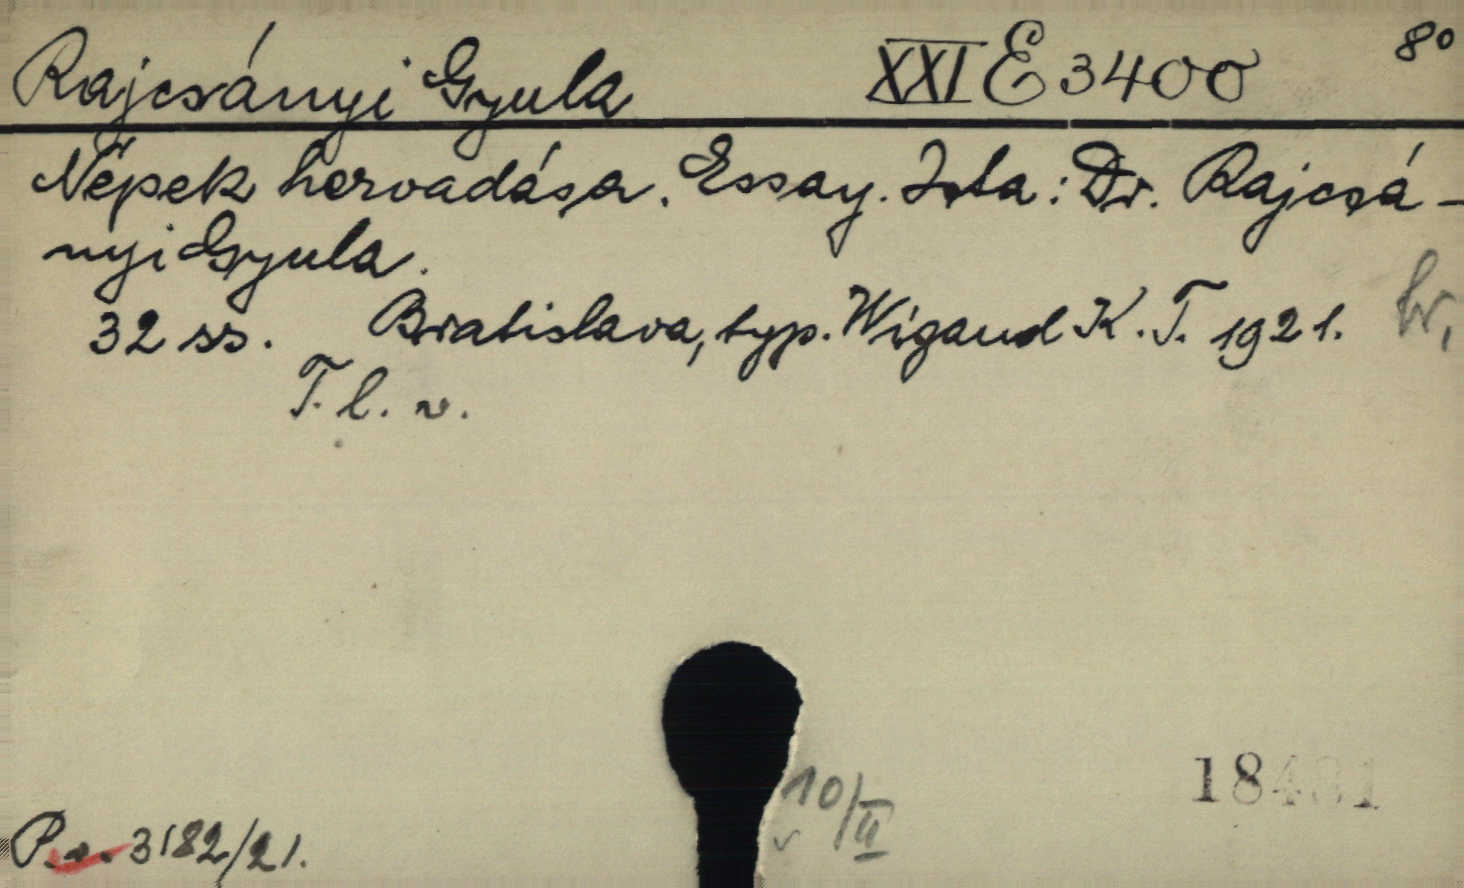 Rajcsányi Gyula XXI E 3400 8°
Népek hervadása. Essay. Irta: Dr. Rajcsá-
nyi Gyula.
32 ss. Bratislava, typ. Wigand K. T. 1921. br.
T. l. v.
10/II
P. v. 3182/21.